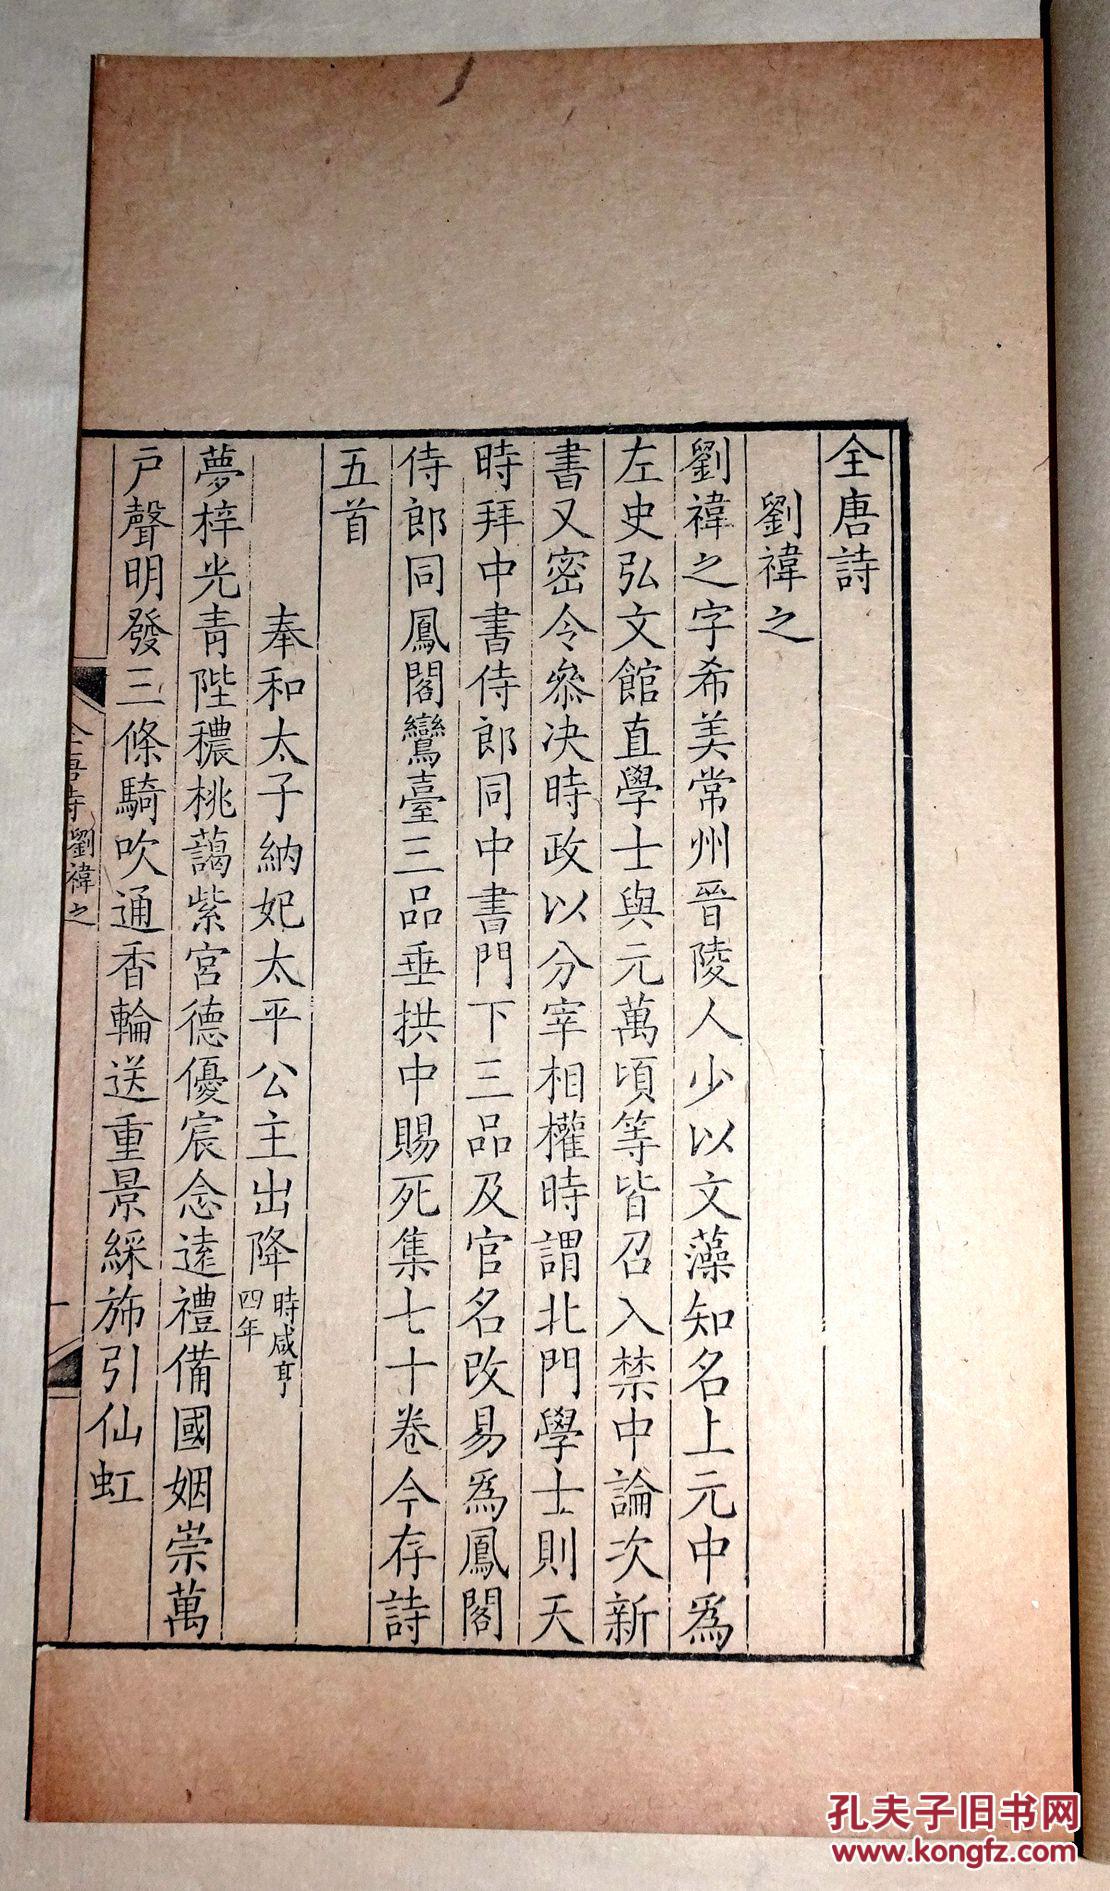 全唐詩
劉禕之
劉禕之字希美常州晉陵人少以文藻知名上元中爲
左史弘文館直學士與元萬頃等皆召入禁中論次新
書又密令叅决時政以分宰相權時謂北門學士則天
時拜中書侍郎同中書門下三品及官名改易爲鳳閣
侍郎同鳳閣鸞臺三品垂拱中賜死集七十卷今存詩
五首
奉和太子納妃太平公主出降時咸亨
四年
夢梓光青陛穠桃藹紫宮德優宸念遠禮備國姻崇萬
戸聲明發三條騎吹通香輪送重景綵斾引仙虹
全唐詩 劉禕之
一
孔夫子旧书网
www.kongfz.com